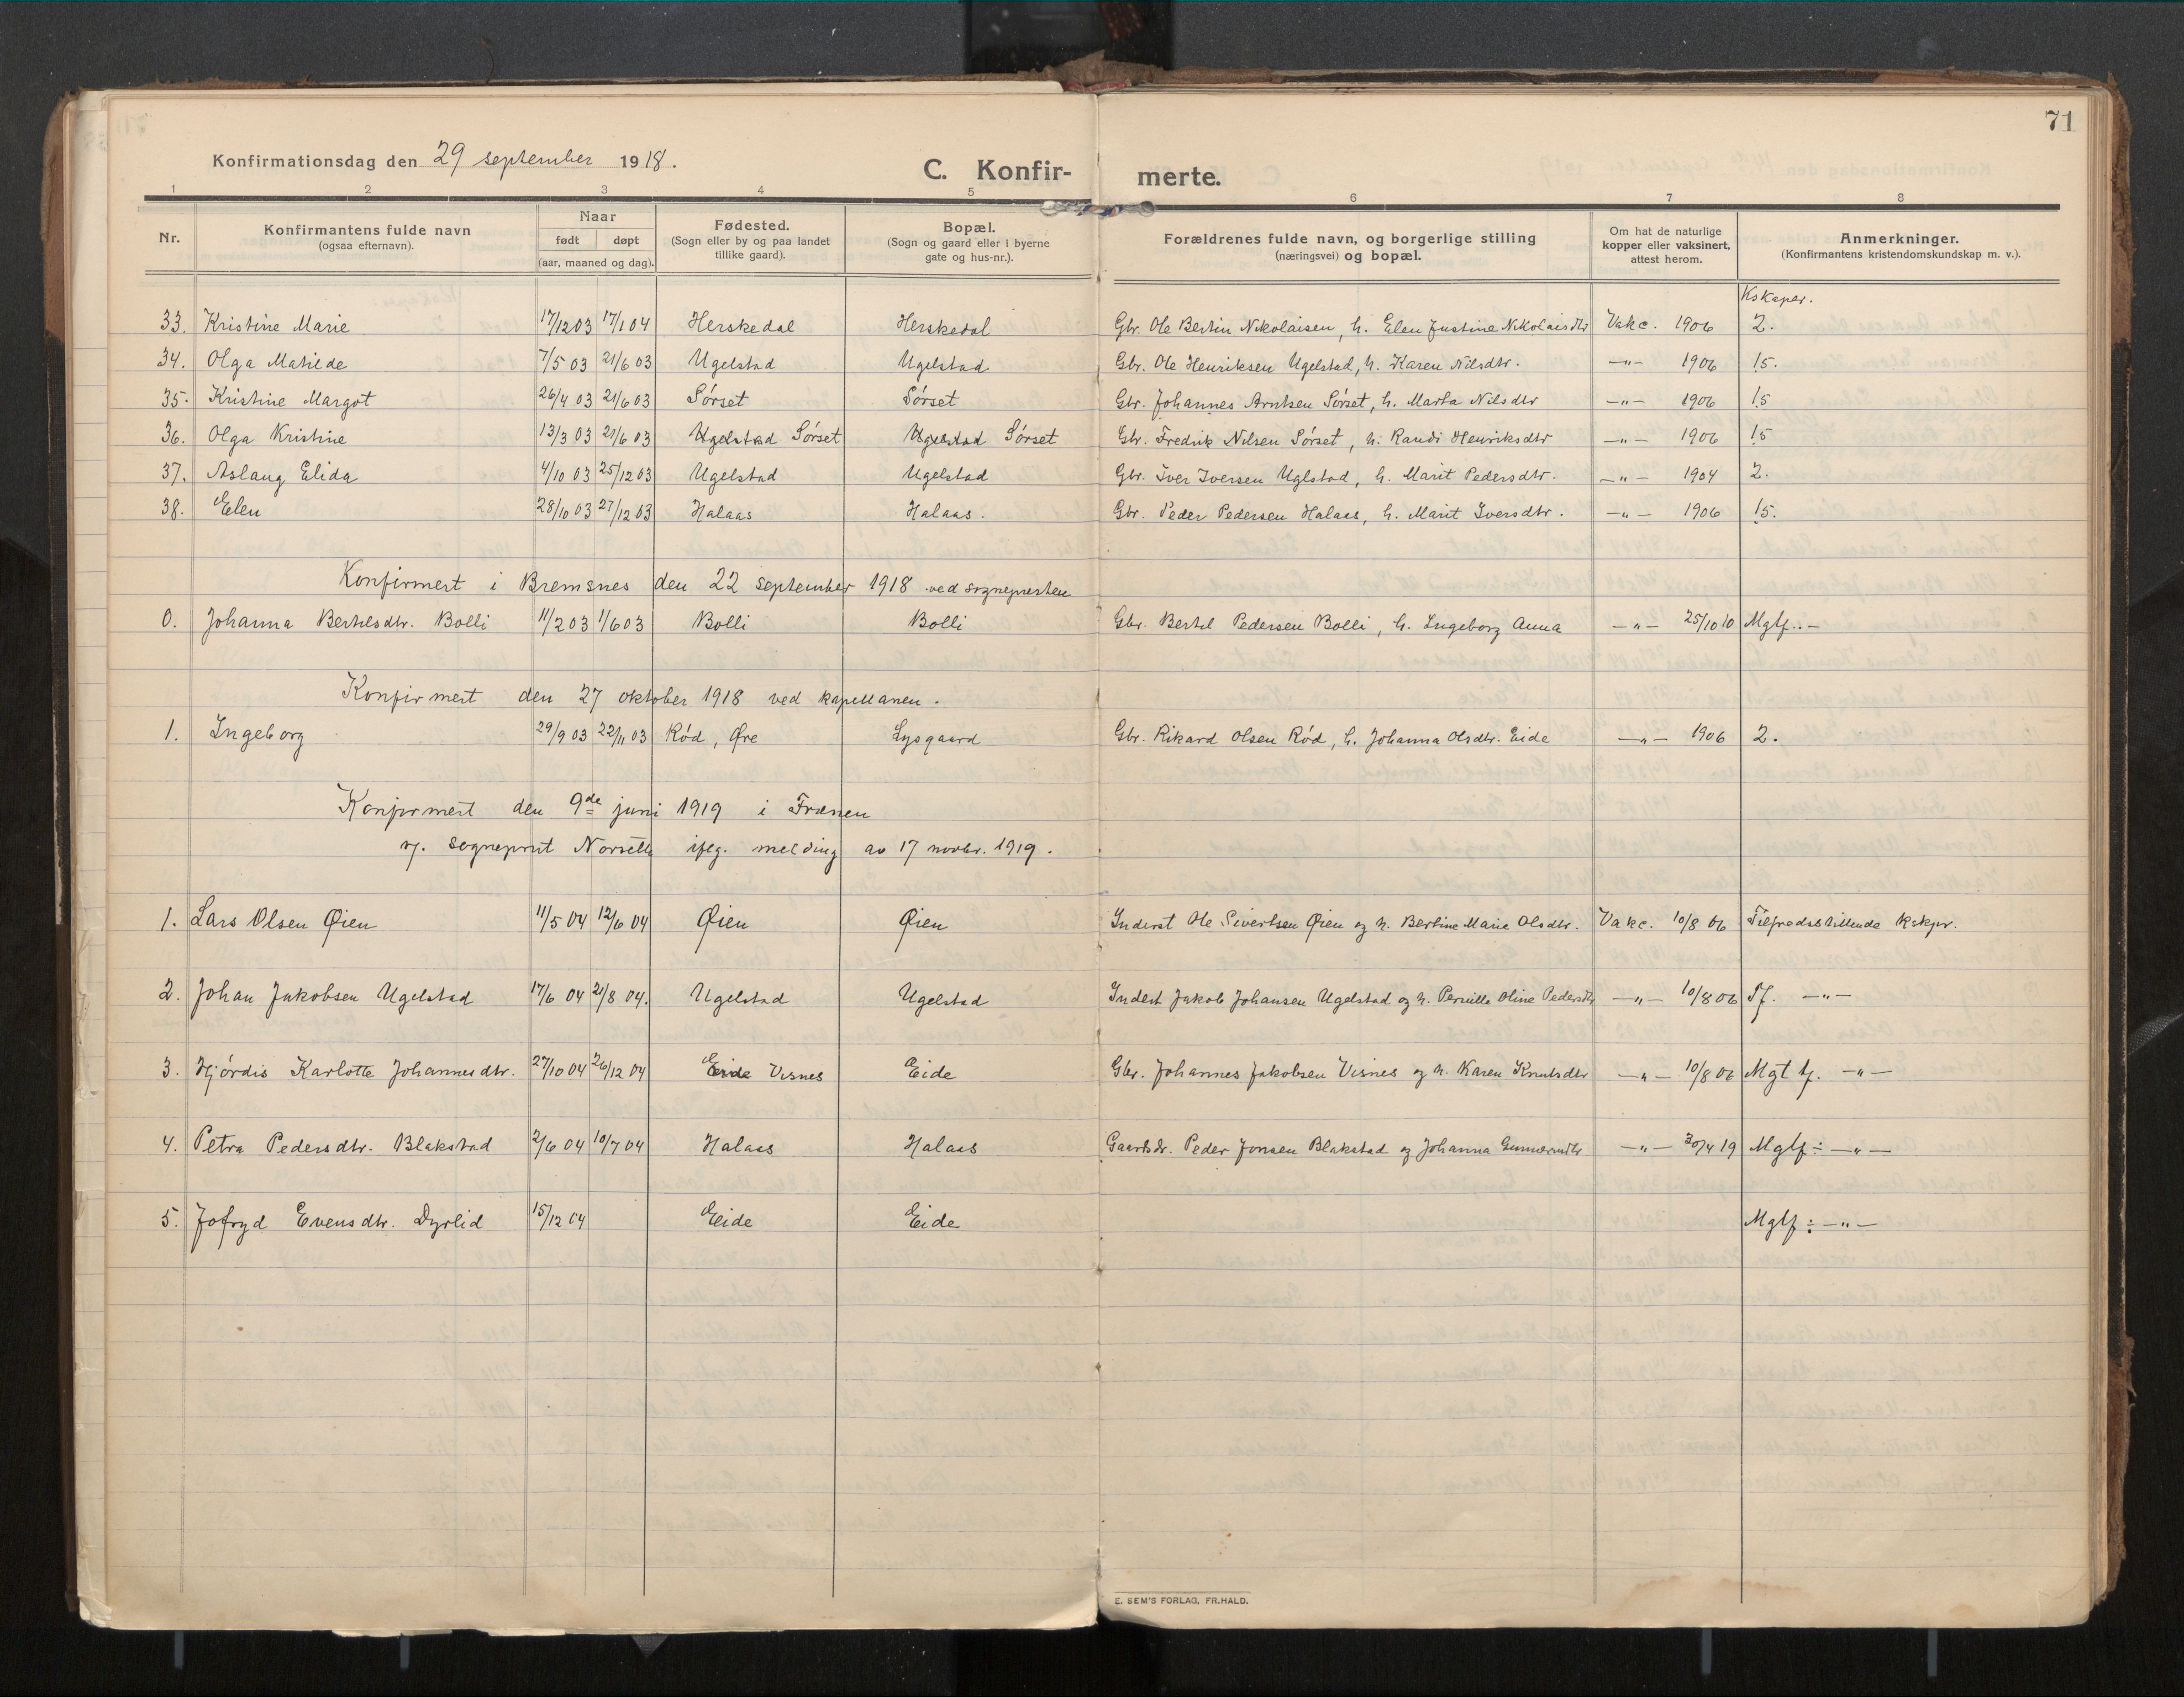 71
Konfirmationsdag den 29 september 1918.
C. Konfir- merte.
1 2 3 4 5 6 7 8
Nr. Konfirmantens fulde navn (ogsaa efternavn). Naar født døpt (aar, maaned og dag). Fødested. (Sogn eller by og paa landet tillike gaard). Bopæl. (Sogn og gaard eller i byerne gate og hus-nr.). Forældrenes fulde navn, og borgerlige stilling (næringsvei) og bopæl. Om hat de naturlige kopper eller vaksinert, attest herom. Anmerkninger. (Konfirmantens kristendomskundskap m. v.).
Kskaper.
33. Kristine Marie 17/12 03 17/1 04 Herskedal Herskedal Gbr. Ole Bertin Nikolaisen, h. Elen Justine Nikolaisdtr Vakc. 1906 2.
34. Olga Matilde 7/5 03 21/6 03 Ugelstad Ugelstad Gbr. Ole Henriksen Ugelstad, h. Karen Nilsdtr. —"— 1906 1.5.
35. Kristine Margot 26/4 03 21/6 03 Sørset Sørset Gbr. Johannes Arntsen Sørset, h. Marta Nilsdtr —"— 1906 1.5
36. Olga Kristine 13/3 03 21/6 03 Ugelstad Sørset Ugelstad Sørset Gbr. Fredrik Nilsen Sørset, h. Randi Henriksdtr —"— 1906 1.5
37. Aslaug Elida 4/10 03 25/12 03 Ugelstad Ugelstad Gbr. Iver Iversen Uglstad, h. Marit Pedersdtr. —"— 1904 2.
38. Elen 28/10 03 27/12 03 Halaas Halaas. Gbr. Peder Pedersen Halaas, h. Marit Iversdtr. —"— 1906 1.5.
Konfirmert i Bremsnes den 22 september 1918 ved sognepresten
0. Johanna Bertilsdtr. Bolli 11/2 03 1/6 03 Bolli Bolli Gbr. Bertil Pedersen Bolli, h. Ingeborg Anna —"— 25/10 10 Mgtf..—
Konfirmert den 27 oktober 1918 ved kapellanen.
1. Ingeborg 29/9 03 22/11 03 Rød, Øre Lysgaard Gbr. Rikard Olsen Rød, h. Johanna Olsdtr. Eide —"— 1906 2.
Konfirmert den 9de juni 1919 i Frænen
v. sogneprest ifLg. melding av 17 novbr. 1919.
1. Lars Olsen Øien 11/5 04 12/6 04 Øien Øien Inderst Ole Sivertsen Øien og h. Bertine Marie Olsdtr. Vakc. 10/8 06 Tilfredsstillende Kskpr.
2. Johan Jakobsen Ugelstad 17/6 04 21/8 04. Ugelstad Ugelstad Inderst Jakob Johansen Ugelstad og h. Pernille Oline Pedersdtr —"— 10/8 06 Tf. —"—
3. Hjørdis Karlotte Johannesdtr. 27/10 04 26/12 04 Eide Visnes Eide Gbr. Johannes Jakobsen Visnes og h. Karen Knutsdtr —"— 10/8 06 Mgt tf. —"—
4. Petra Pedersdtr. Blakstad 2/6 04 10/7 04 Halaas Halaas Gaardbr. Peder Jonsen Blakstad og Johanna —"— 30/4 19 Mgtf ÷ —"—
5. Jofryd Evensdtr. Dyrlid 15/12 04 Eide Eide Mgtf ÷ —"—
E. SEM'S FORLAG, FR.HALD.